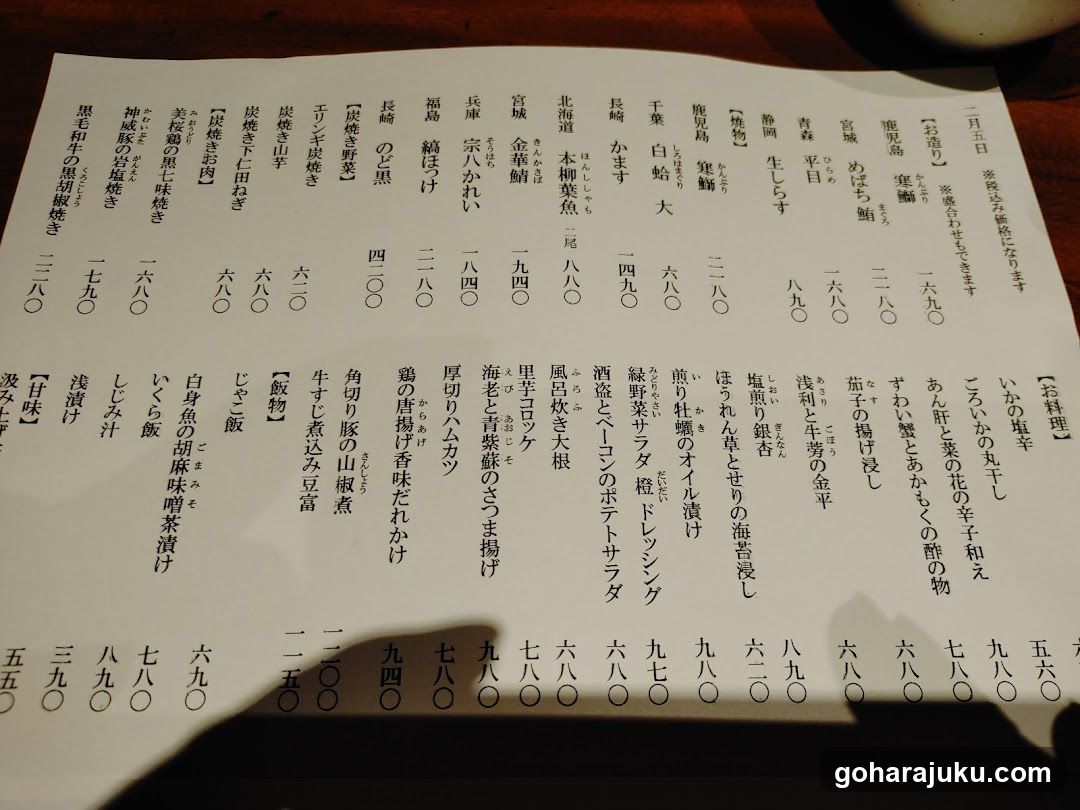 二月五日 ※税込み価格になります
【お造り】 ※盛合わせもできます
かんぶり
鹿児島 寒鰤 一六九〇
まぐろ
宮城 めばち鮪 二一八〇
ひらめ
青森 平目 一六八〇
静岡 生しらす 八九〇
【焼物】
かんぶり
鹿児島 寒鰤 二一八〇
しろはまぐり
千葉 白蛤 大 六八〇
長崎 かます 一四九〇
ほんししゃも
北海道 本柳葉魚 二尾 八八〇
きんかさば
宮城 金華鯖 一九四〇
そうはち
兵庫 宗八かれい 一八四〇
福島 縞ほっけ 二一八〇
長崎 のど黒 四二〇〇
【炭焼き野菜】
エリンギ炭焼き 六二〇
炭焼き山芋 六八〇
炭焼き下仁田ねぎ 六八〇
【炭焼きお肉】
みおうどり
美桜鶏の黒七味焼き 一六八〇
かむいぶた がんえん
神威豚の岩塩焼き 一七九〇
くろこしょう
黒毛和牛の黒胡椒焼き 二二八〇
【お料理】
いかの塩辛
ごろいかの丸干し 五六〇
あん肝と菜の花の辛子和え 九八〇
ずわい蟹とあかもくの酢の物 七八〇
なす
茄子の揚げ浸し 六八〇
あさり ごぼう
浅利と牛蒡の金平 六八〇
しおい ぎんなん
塩煎り銀杏 八九〇
ほうれん草とせりの海苔浸し 六二〇
い かき
煎り牡蠣のオイル漬け 九八〇
みどりやさい だいだい
緑野菜サラダ 橙ドレッシング 九七〇
酒盗とベーコンのポテトサラダ 六八〇
ふろふ
風呂炊き大根 六八〇
里芋コロッケ 七八〇
えび あおじそ
海老と青紫蘇のさつま揚げ 九八〇
厚切りハムカツ 七八〇
からあげ
鶏の唐揚げ香味だれかけ 九四〇
さんしょう
角切り豚の山椒煮 一二〇〇
牛すじ煮込み豆富 一一五〇
【飯物】
じゃこ飯 六九〇
ごまみそ
白身魚の胡麻味噌茶漬け 七八〇
いくら飯 八九〇
しじみ汁 三九〇
浅漬け 五五〇
【甘味】
goharajuku.com